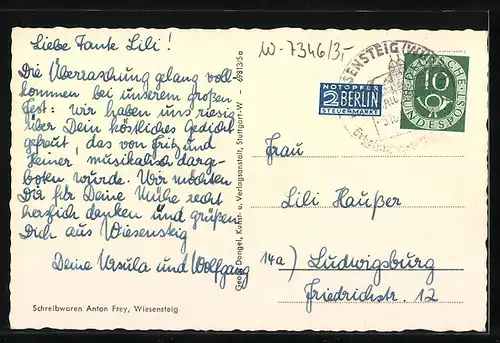 Liebe Tante Lili!
Die Überraschung gelang voll-
kommen bei unserem großen
Fest: wir haben uns riesig
über Dein köstliches Gedicht
gefreut, das von Fritz und
Heiner, musikalisch darge-
boten wurde. Wir möchten
Dir für Deine Mühe recht
herzlich danken und grüßen
Dich aus Wiesensteig
Deine Ursula und Wolfgang
Schreibwaren Anton Frey, Wiesensteig
Georg Dangel, Kunst- u. Verlagsanstalt, Stuttgart-W
W-7346/3,-
NOTOPFER
2 BERLIN
STEUERMARKE
10
DEUTSCHE
BUNDESPOST
Frau
Lili Haußer
14a) Ludwigsburg
Friedrichstr. 12